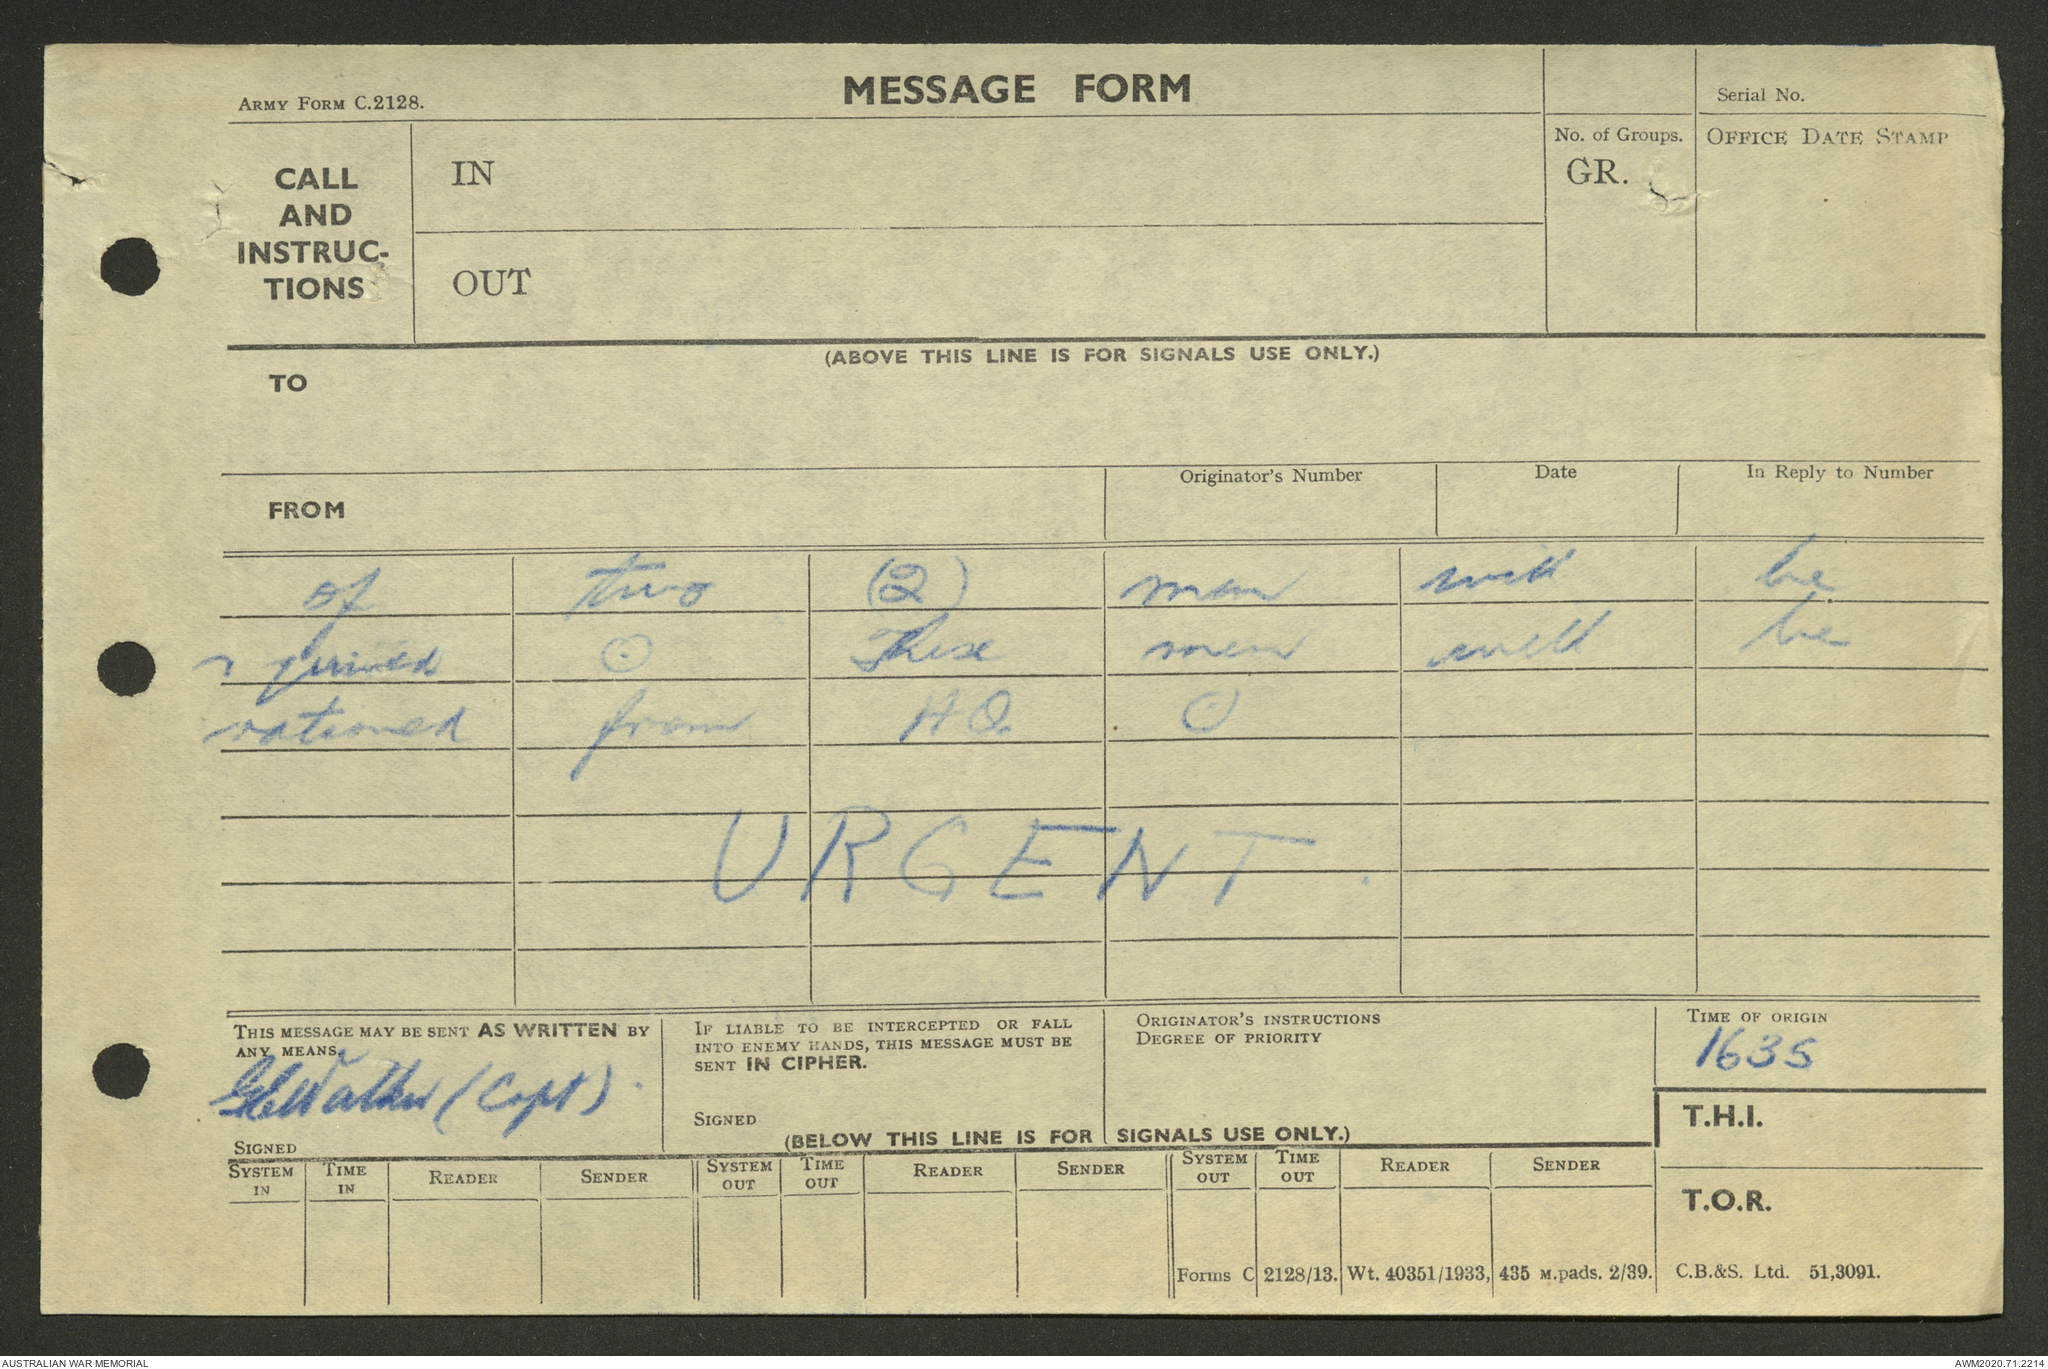 MESSAGE FORM
Army Form C.2128.
Serial No.
CALL AND INSTRUC-TIONS
IN
OUT
No. of Groups.
GR.
OFFICE DATE STAMP
(ABOVE THIS LINE IS FOR SIGNALS USE ONLY.)
TO
FROM
Originator's Number
Date
In Reply to Number
of two (2) men will be
required ⊙ These men will be
rationed from HQ. ⊙
URGENT.
THIS MESSAGE MAY BE SENT AS WRITTEN BY
ANY MEANS.
Walker (Capt).
SIGNED
IF LIABLE TO BE INTERCEPTED OR FALL
INTO ENEMY HANDS, THIS MESSAGE MUST BE
SENT IN CIPHER.
SIGNED
ORIGINATOR'S INSTRUCTIONS
DEGREE OF PRIORITY
TIME OF ORIGIN
1635
T.H.I.
T.O.R.
(BELOW THIS LINE IS FOR SIGNALS USE ONLY.)
SYSTEM IN TIME IN READER SENDER SYSTEM OUT TIME OUT READER SENDER SYSTEM OUT TIME OUT READER SENDER
Forms C 2128/13. Wt. 40351/1933, 435 M.pads. 2/39. C.B.&S. Ltd. 51,3091.
AUSTRALIAN WAR MEMORIAL
AWM2020.71.2214